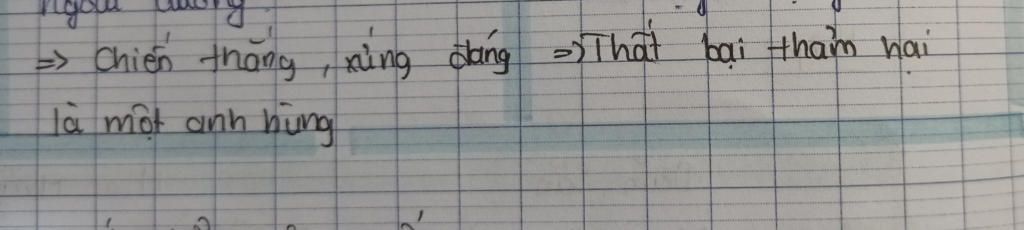 => Chiến thắng, xứng đáng
là một anh hùng
=> Thất bại thảm hại